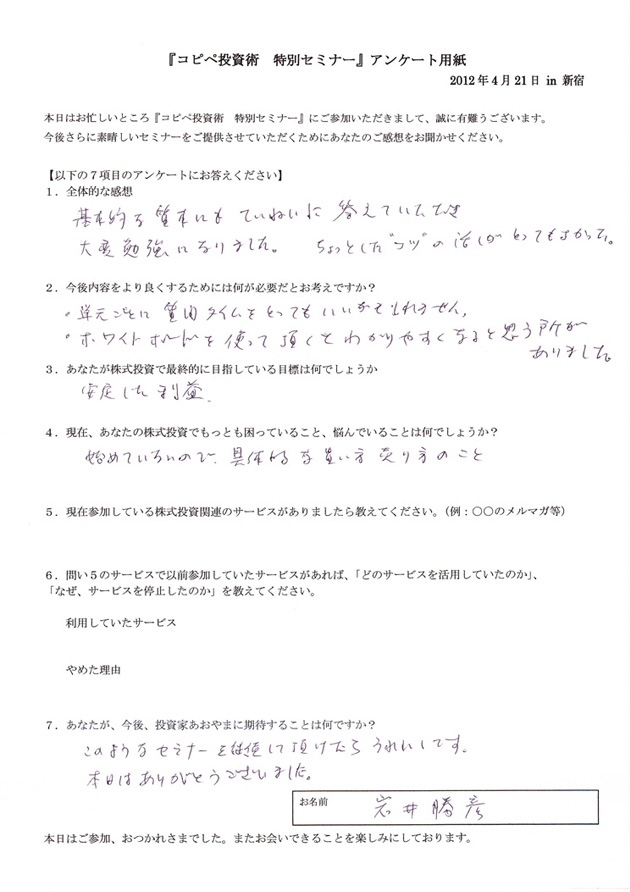 『コピペ投資術　特別セミナー』アンケート用紙
2012年4月21日 in 新宿
本日はお忙しいところ『コピペ投資術　特別セミナー』にご参加いただきまして、誠に有難うございます。
今後さらに素晴しいセミナーをご提供させていただくためにあなたのご感想をお聞かせください。
【以下の７項目のアンケートにお答えください】
１．全体的な感想
基本的な質問にも ていねいに 答えていただき
大変勉強になりました。 ちょっとした"コツ"の話しがとってもよかった。
２．今後内容をより良くするためには何が必要だとお考えですか？
・単元ごとに 質問タイムをとってもいいかもしれません。
・ホワイトボードを使って頂くとわかりやすくなると思う所が
ありました。
３．あなたが株式投資で最終的に目指している目標は何でしょうか
安定した利益。
４．現在、あなたの株式投資でもっとも困っていること、悩んでいることは何でしょうか？
始めていないので、具体的な買い方 売り方のこと
５．現在参加している株式投資関連のサービスがありましたら教えてください。（例：〇〇のメルマガ等）
６．問い５のサービスで以前参加していたサービスがあれば、「どのサービスを活用していたのか」、
「なぜ、サービスを停止したのか」を教えてください。
利用していたサービス
やめた理由
７．あなたが、今後、投資家あおやまに期待することは何ですか？
このようなセミナーを継続して頂けたらうれしいです。
本日はありがとうございました。
お名前 岩井勝彦
本日はご参加、おつかれさまでした。またお会いできることを楽しみにしております。